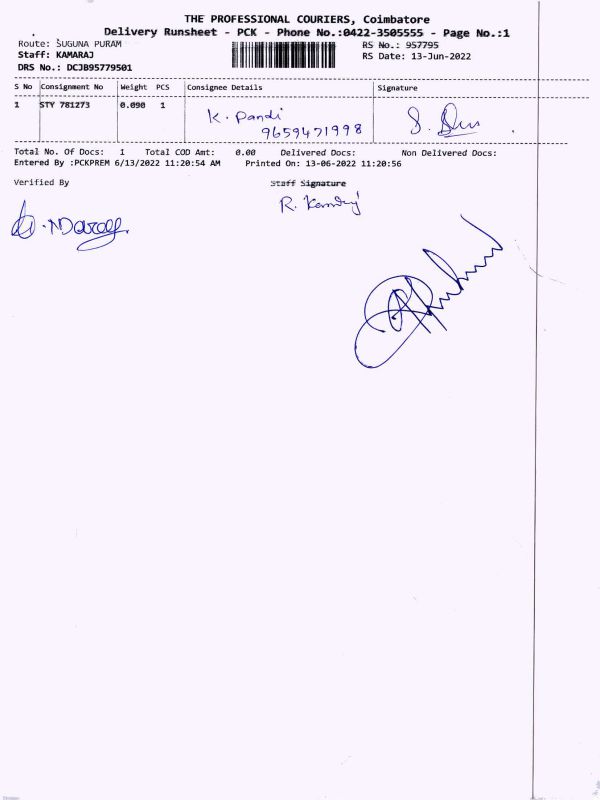 THE PROFESSIONAL COURIERS, Coimbatore
Delivery Runsheet - PCK - Phone No.:0422-3505555 - Page No.:1
Route: SUGUNA PURAM
RS No.: 957795
Staff: KAMARAJ
RS Date: 13-Jun-2022
DRS No.: DCJB95779501
S No Consignment No Weight PCS Consignee Details Signature
1 STY 781273 0.090 1
K. Pandi
9659471998
Total No. Of Docs: 1 Total COD Amt: 0.00 Delivered Docs: Non Delivered Docs:
Entered By :PCKPREM 6/13/2022 11:20:54 AM Printed On: 13-06-2022 11:20:56
Verified By Staff Signature